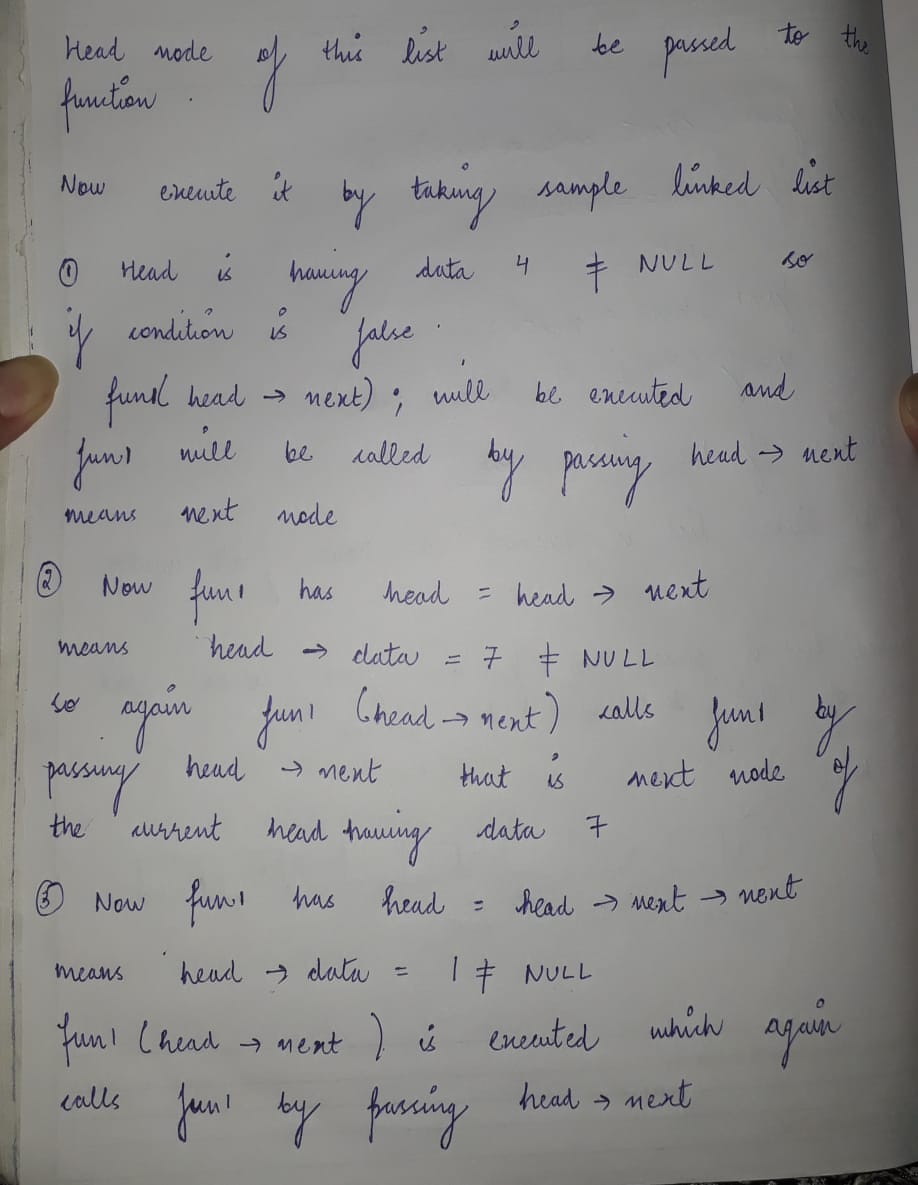 Head node of this list will be passed to the
function.
Now execute it by taking sample linked list
① Head is having data 4 ≠ NULL so
if condition is false.
fun1( head → next); will be executed and
fun1 will be called by passing head → next
means next node
② Now fun1 has head = head → next
means head → data = 7 ≠ NULL
so again fun1 (head → next) calls fun1 by
passing head → next that is next node of
the current head having data 7
③ Now fun1 has head = head → next → next
means head → data = 1 ≠ NULL
fun1 (head → next) is executed which again
calls fun1 by passing head → next